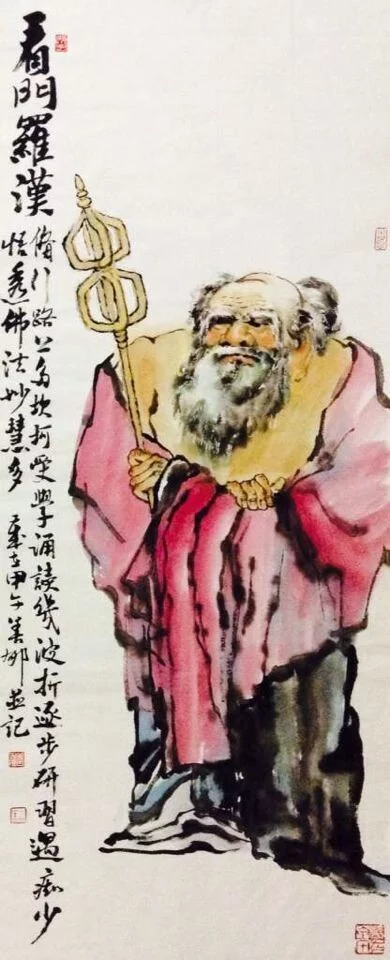 看門羅漢
脩行路上多坎坷受學誦讀幾波折逐步研習痴少
悟透佛法妙慧多 歲在甲午美娜並記